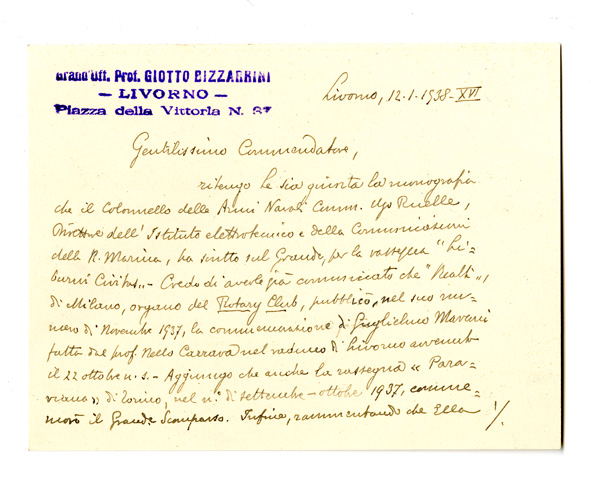 Grand'Uff. Prof. GIOTTO BIZZARRINI
— LIVORNO —
Piazza della Vittoria N. 37
Livorno, 12.1.1938-XVI
Gentilissimo Commendatore,
ritengo le sia giunta la monografia
che il Colonnello delle Armi Navali Comm. Ugo Ruelle,
Direttore dell'Istituto elettrotecnico e delle Comunicazioni
della R. Marina, ha scritto sul Grande, per la rassegna "Li-
burni Civitas". - Credo di averle già comunicato che "Realtà",
di Milano, organo del Rotary Club, pubblicò, nel suo nu-
mero di Novembre 1937, la commemorazione di Guglielmo Marconi
fatta dal prof. Nello Carrara nel raduno di Livorno avvenuto
il 22 ottobre u. s. - Aggiungo che anche la rassegna « Para-
viana » di Torino, nel n.° di settembre-ottobre 1937, comme-
morò il Grande Scomparso. Infine, rammentando che Ella ./.